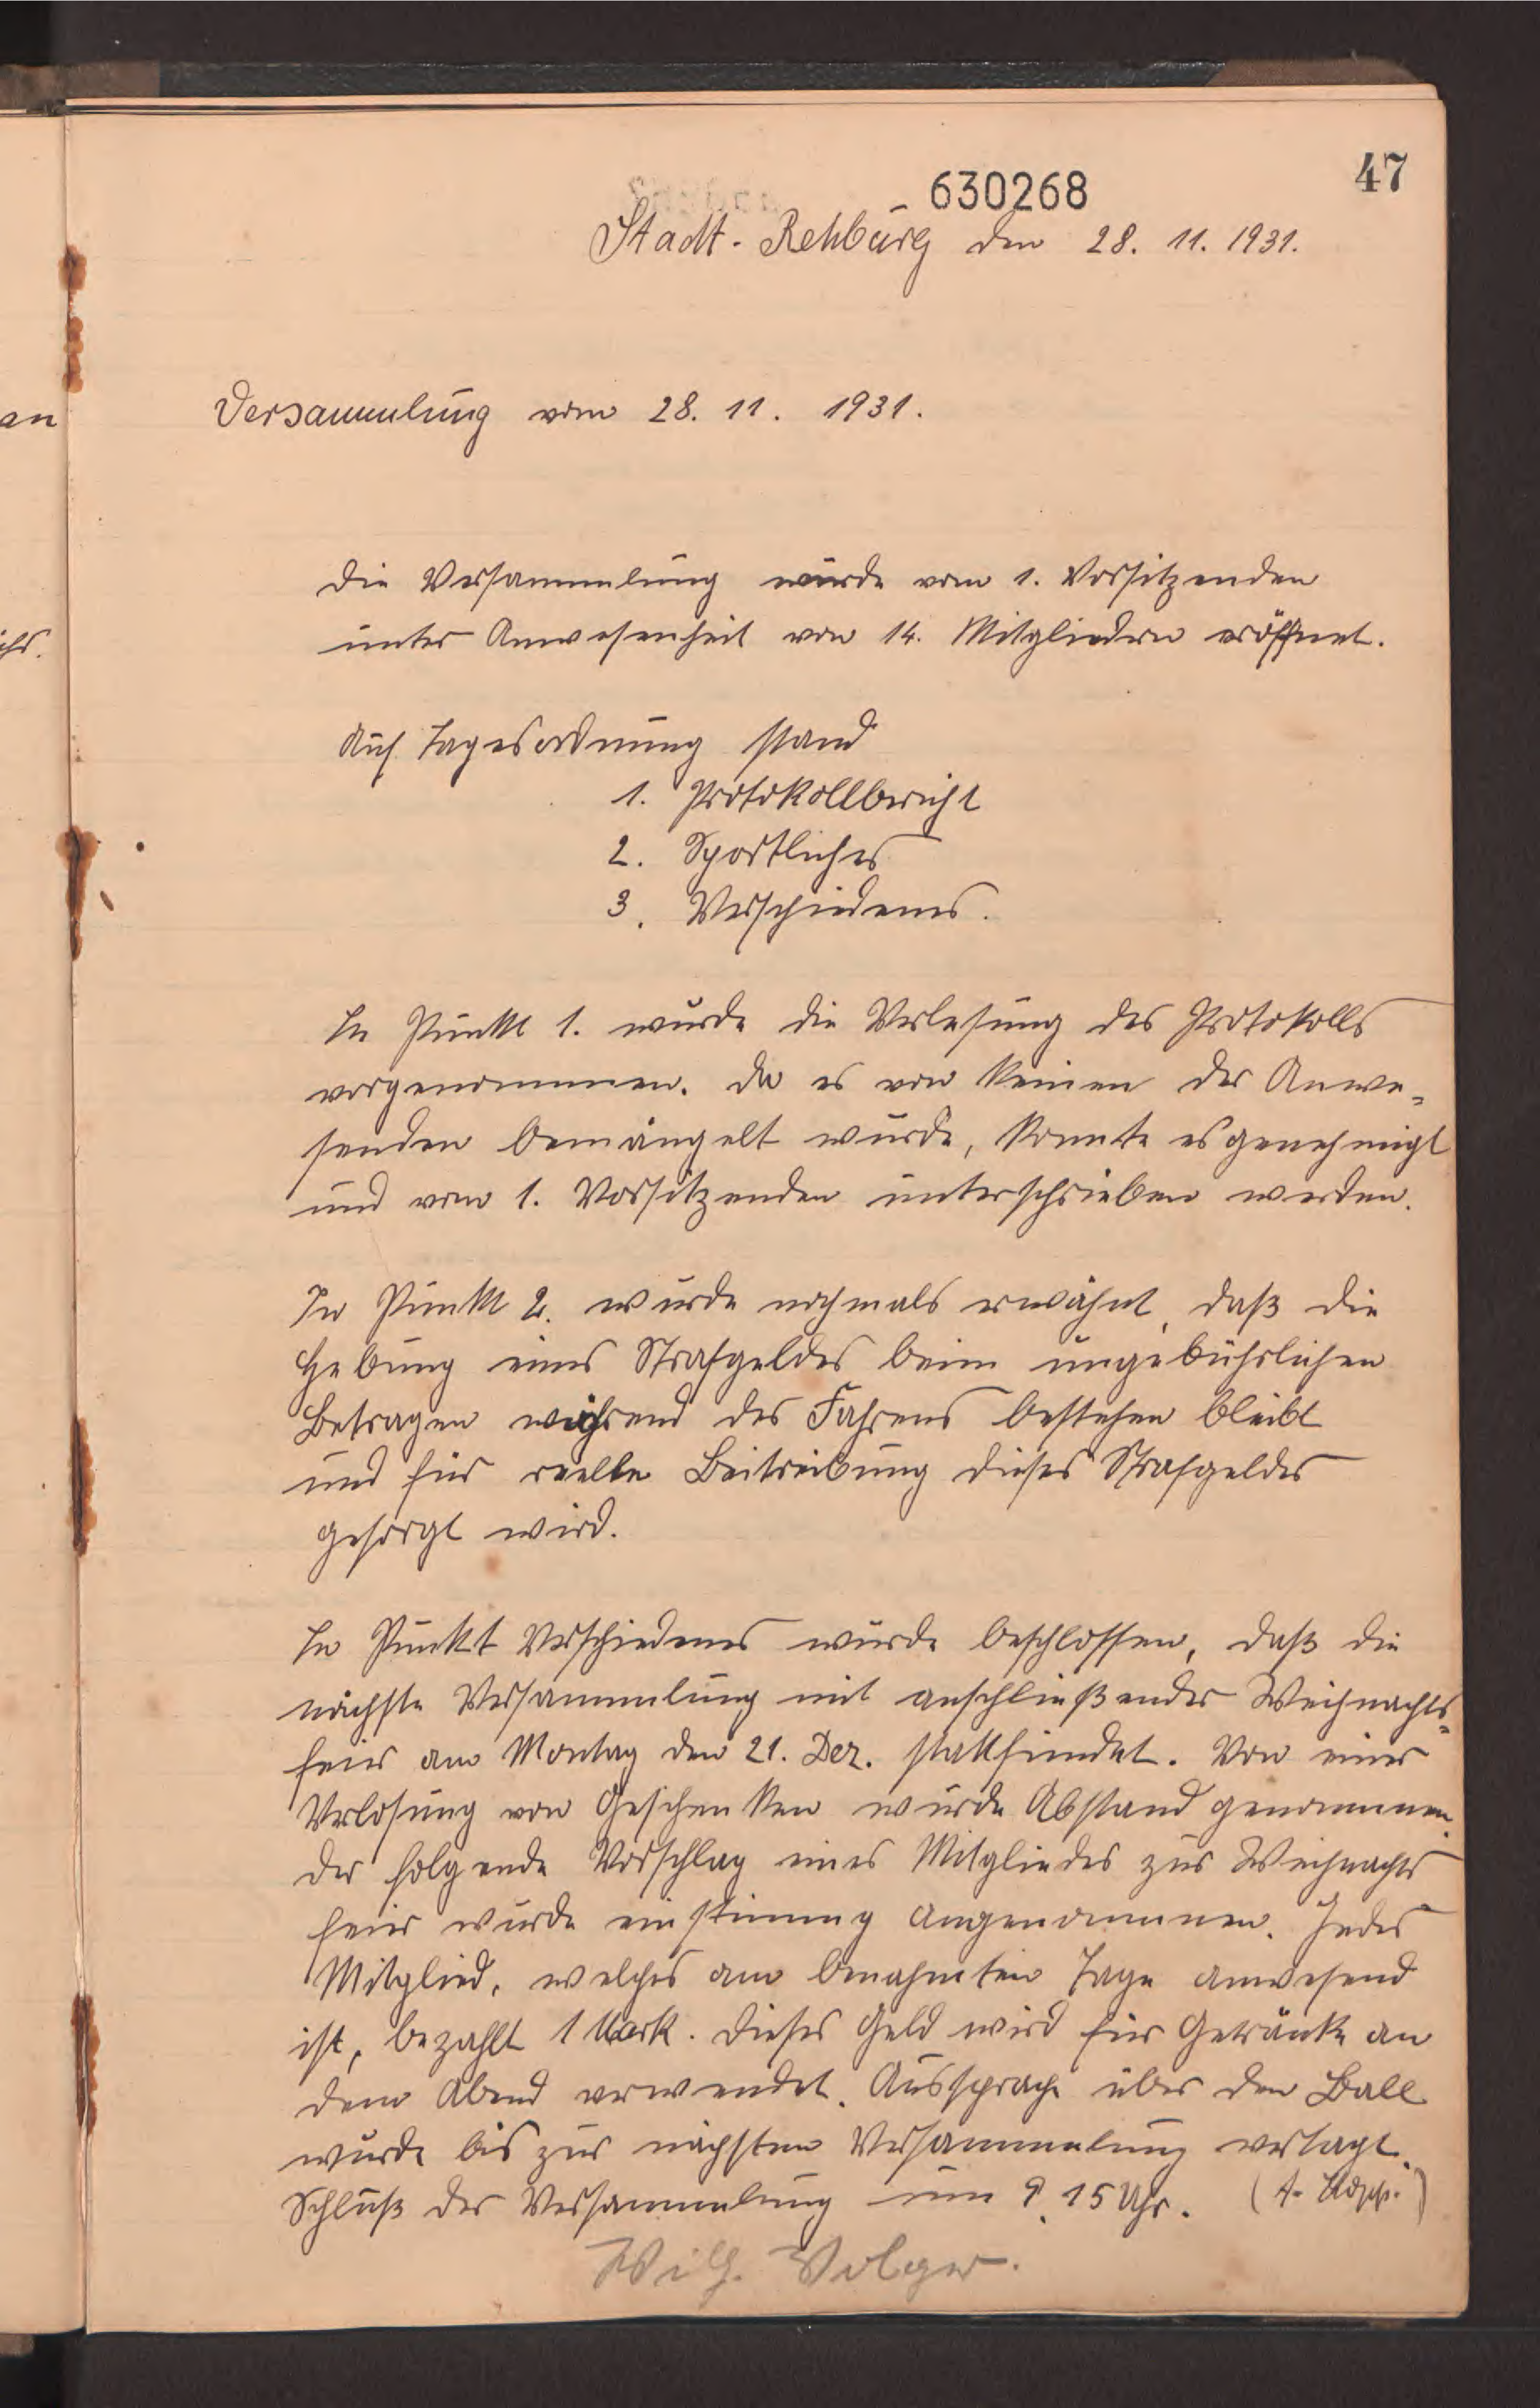 47
630268
Stadt-Rehburg den 28. 11. 1931.
Versammlung vom 28. 11. 1931.
Die Versammlung wurde vom 1. Vorsitzenden
unter Anwesenheit von 14. Mitgliedern eröffnet.
Auf Tagesordnung stand
1. Protokollbericht
2. Sportliches
3. Verschiedenes.
In Punkt 1. wurde die Verlesung des Protokolls
vorgenommen. Da es von keinen der Anwe-
senden bemängelt wurde, konnte es genehmigt
und vom 1. Vorsitzenden unterschrieben werden.
In Punkt 2. wurde nochmals erwähnt, daß die
Hebung eines Strafgeldes beim ungebührlichen
Betragen während des Fahrens bestehen bleibt
und für reelle Beitreibung dieses Strafgeldes
gesorgt wird.
In Punkt Verschiedenes wurde beschlossen, daß die
nächste Versammlung mit anschließender Weihnachts-
feier am Montag den 21. Dez. stattfindet. Von einer
Verlosung von Geschenken wurde Abstand genommen.
Der folgende Vorschlag eines Mitgliedes zur Weihnachts
feier wurde einstimmg angenommen. Jedes
Mitglied, welches am benahmten Tage anwesend
ist, bezahlt 1 Mark. Dieses Geld wird für Getränke an
dem Abend verwendet. Aussprache über den Ball
wurde bis zur nächsten Versammlung vertagt.
Schluß der Versammlung um 9.15 Uhr.
Wilh. Volger.
an